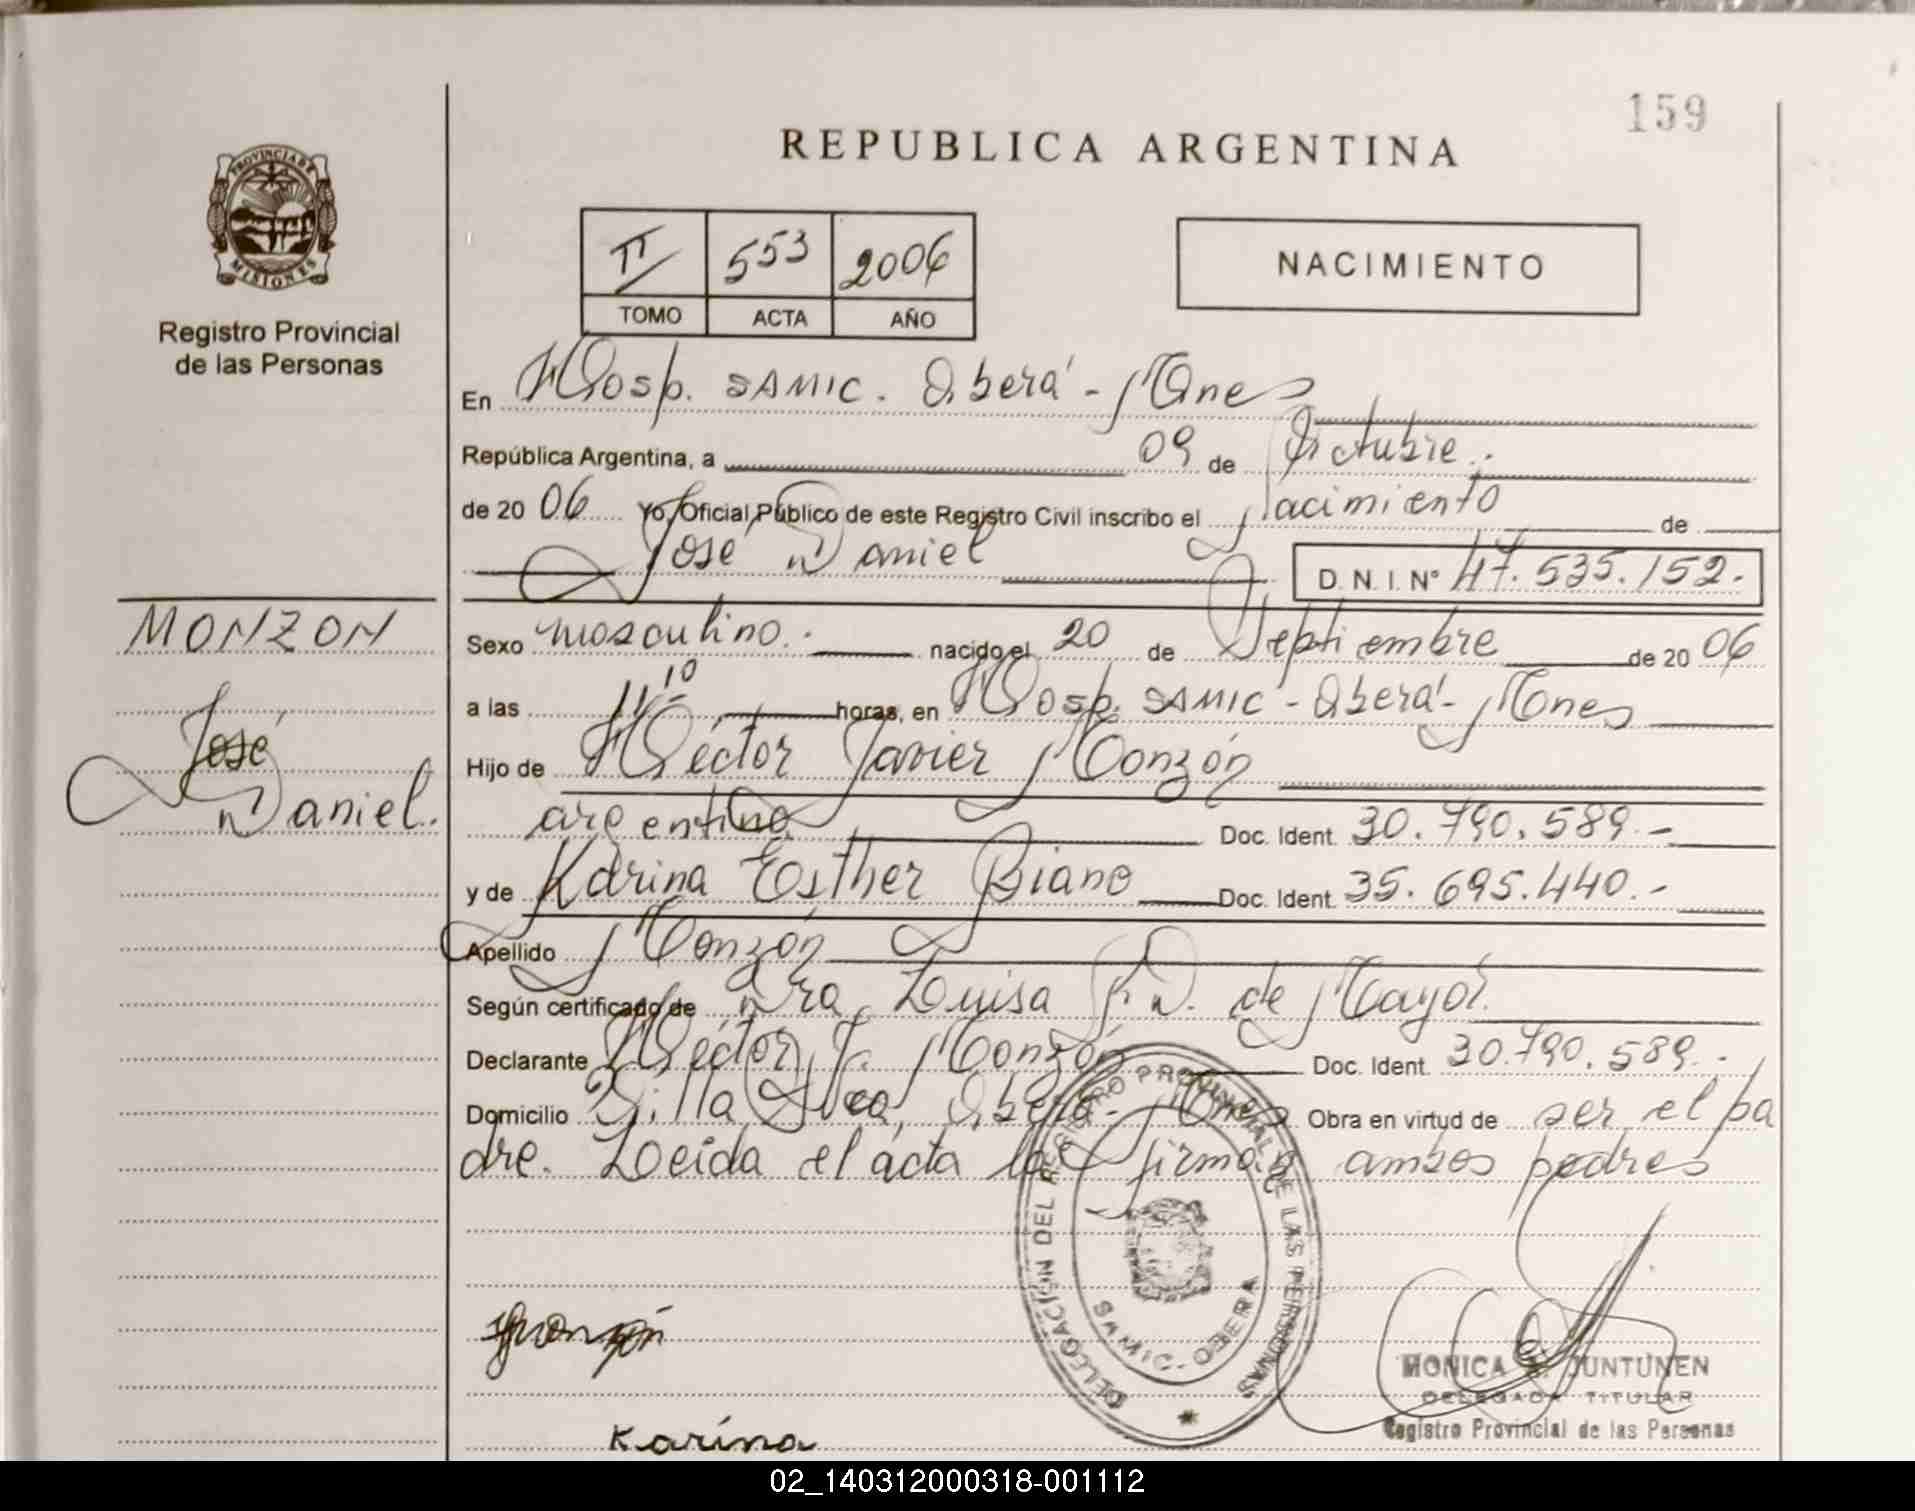 159
REPUBLICA ARGENTINA
PROVINCIA DE
MISIONES
Registro Provincial
de las Personas
II 553 2006
TOMO ACTA AÑO
NACIMIENTO
En Hosp. SAMIC. Oberá - Mnes
República Argentina, a 09 de Octubre.
de 20 06 Yo, Oficial Público de este Registro Civil inscribo el Nacimiento de
José Daniel D. N. I. N° 47.535.152.
MONZON
José
Daniel.
Sexo masculino. nacido el 20 de Septiembre de 20 06
a las 11,10 horas, en Hosp. SAMIC - Oberá - Mnes
Hijo de Héctor Javier Monzón
argentino Doc. Ident. 30.790.589.-
y de Karina Esther Biano Doc. Ident. 35.695.440.-
Apellido Monzón
Según certificado de Dra Luisa de Mayol.
Declarante Héctor J. Monzón Doc. Ident. 30.790.589.-
Domicilio Villa Oberá - Mnes Obra en virtud de ser el pa
dre. Leída el acta la firman ambos padres
DELEGACIÓN DEL REGISTRO PROVINCIAL DE LAS PERSONAS
SAMIC - OBERA
Monzón
MONICA JUNTUNEN
DELEGADA TITULAR
Registro Provincial de las Personas
Karina
02_140312000318-001112